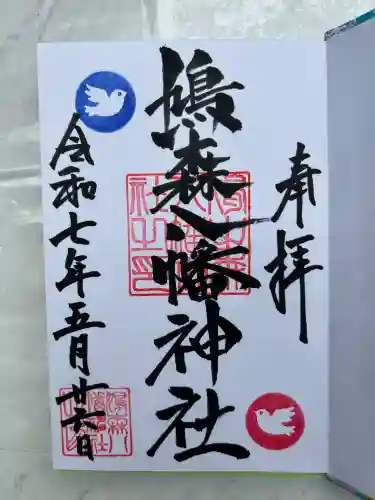 奉拝
鳩森八幡神社
令和七年五月廿六日